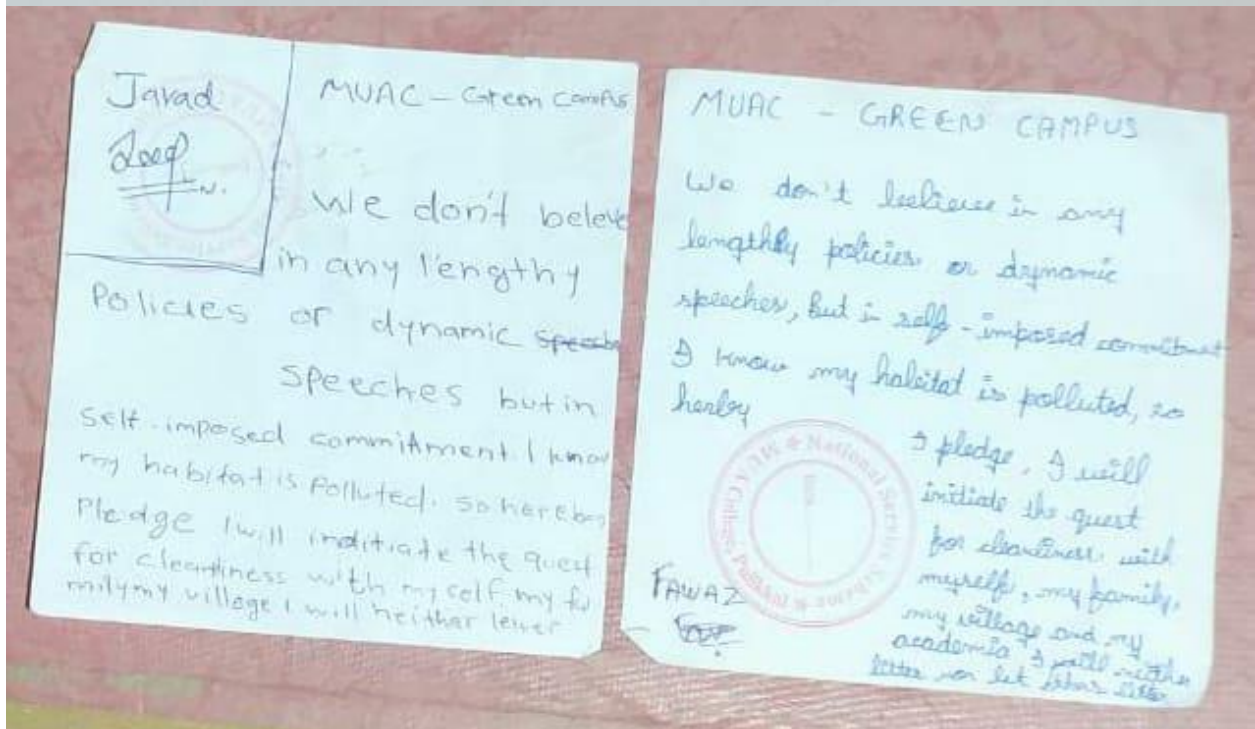 Javad
MUAC - Green Campus
We don't beleve
in any lengthy
Policies or dynamic
speeches but in
self-imposed commitment I know
my habitat is Polluted. so hereby
Pledge I will inditiate the quest
for cleanliness with myself my fa
mily my village I will neither
MUAC - GREEN CAMPUS
We don't believe in any
lengthy policies or dynamic
speeches, But in self-imposed commitment
I know my habitat is polluted, so
herby
I pledge, I will
initiate the quest
for cleanliness with
myself, my family,
my village and my
academia I will neither
litter nor let others litter
FAWAZ
National Service Scheme
College,